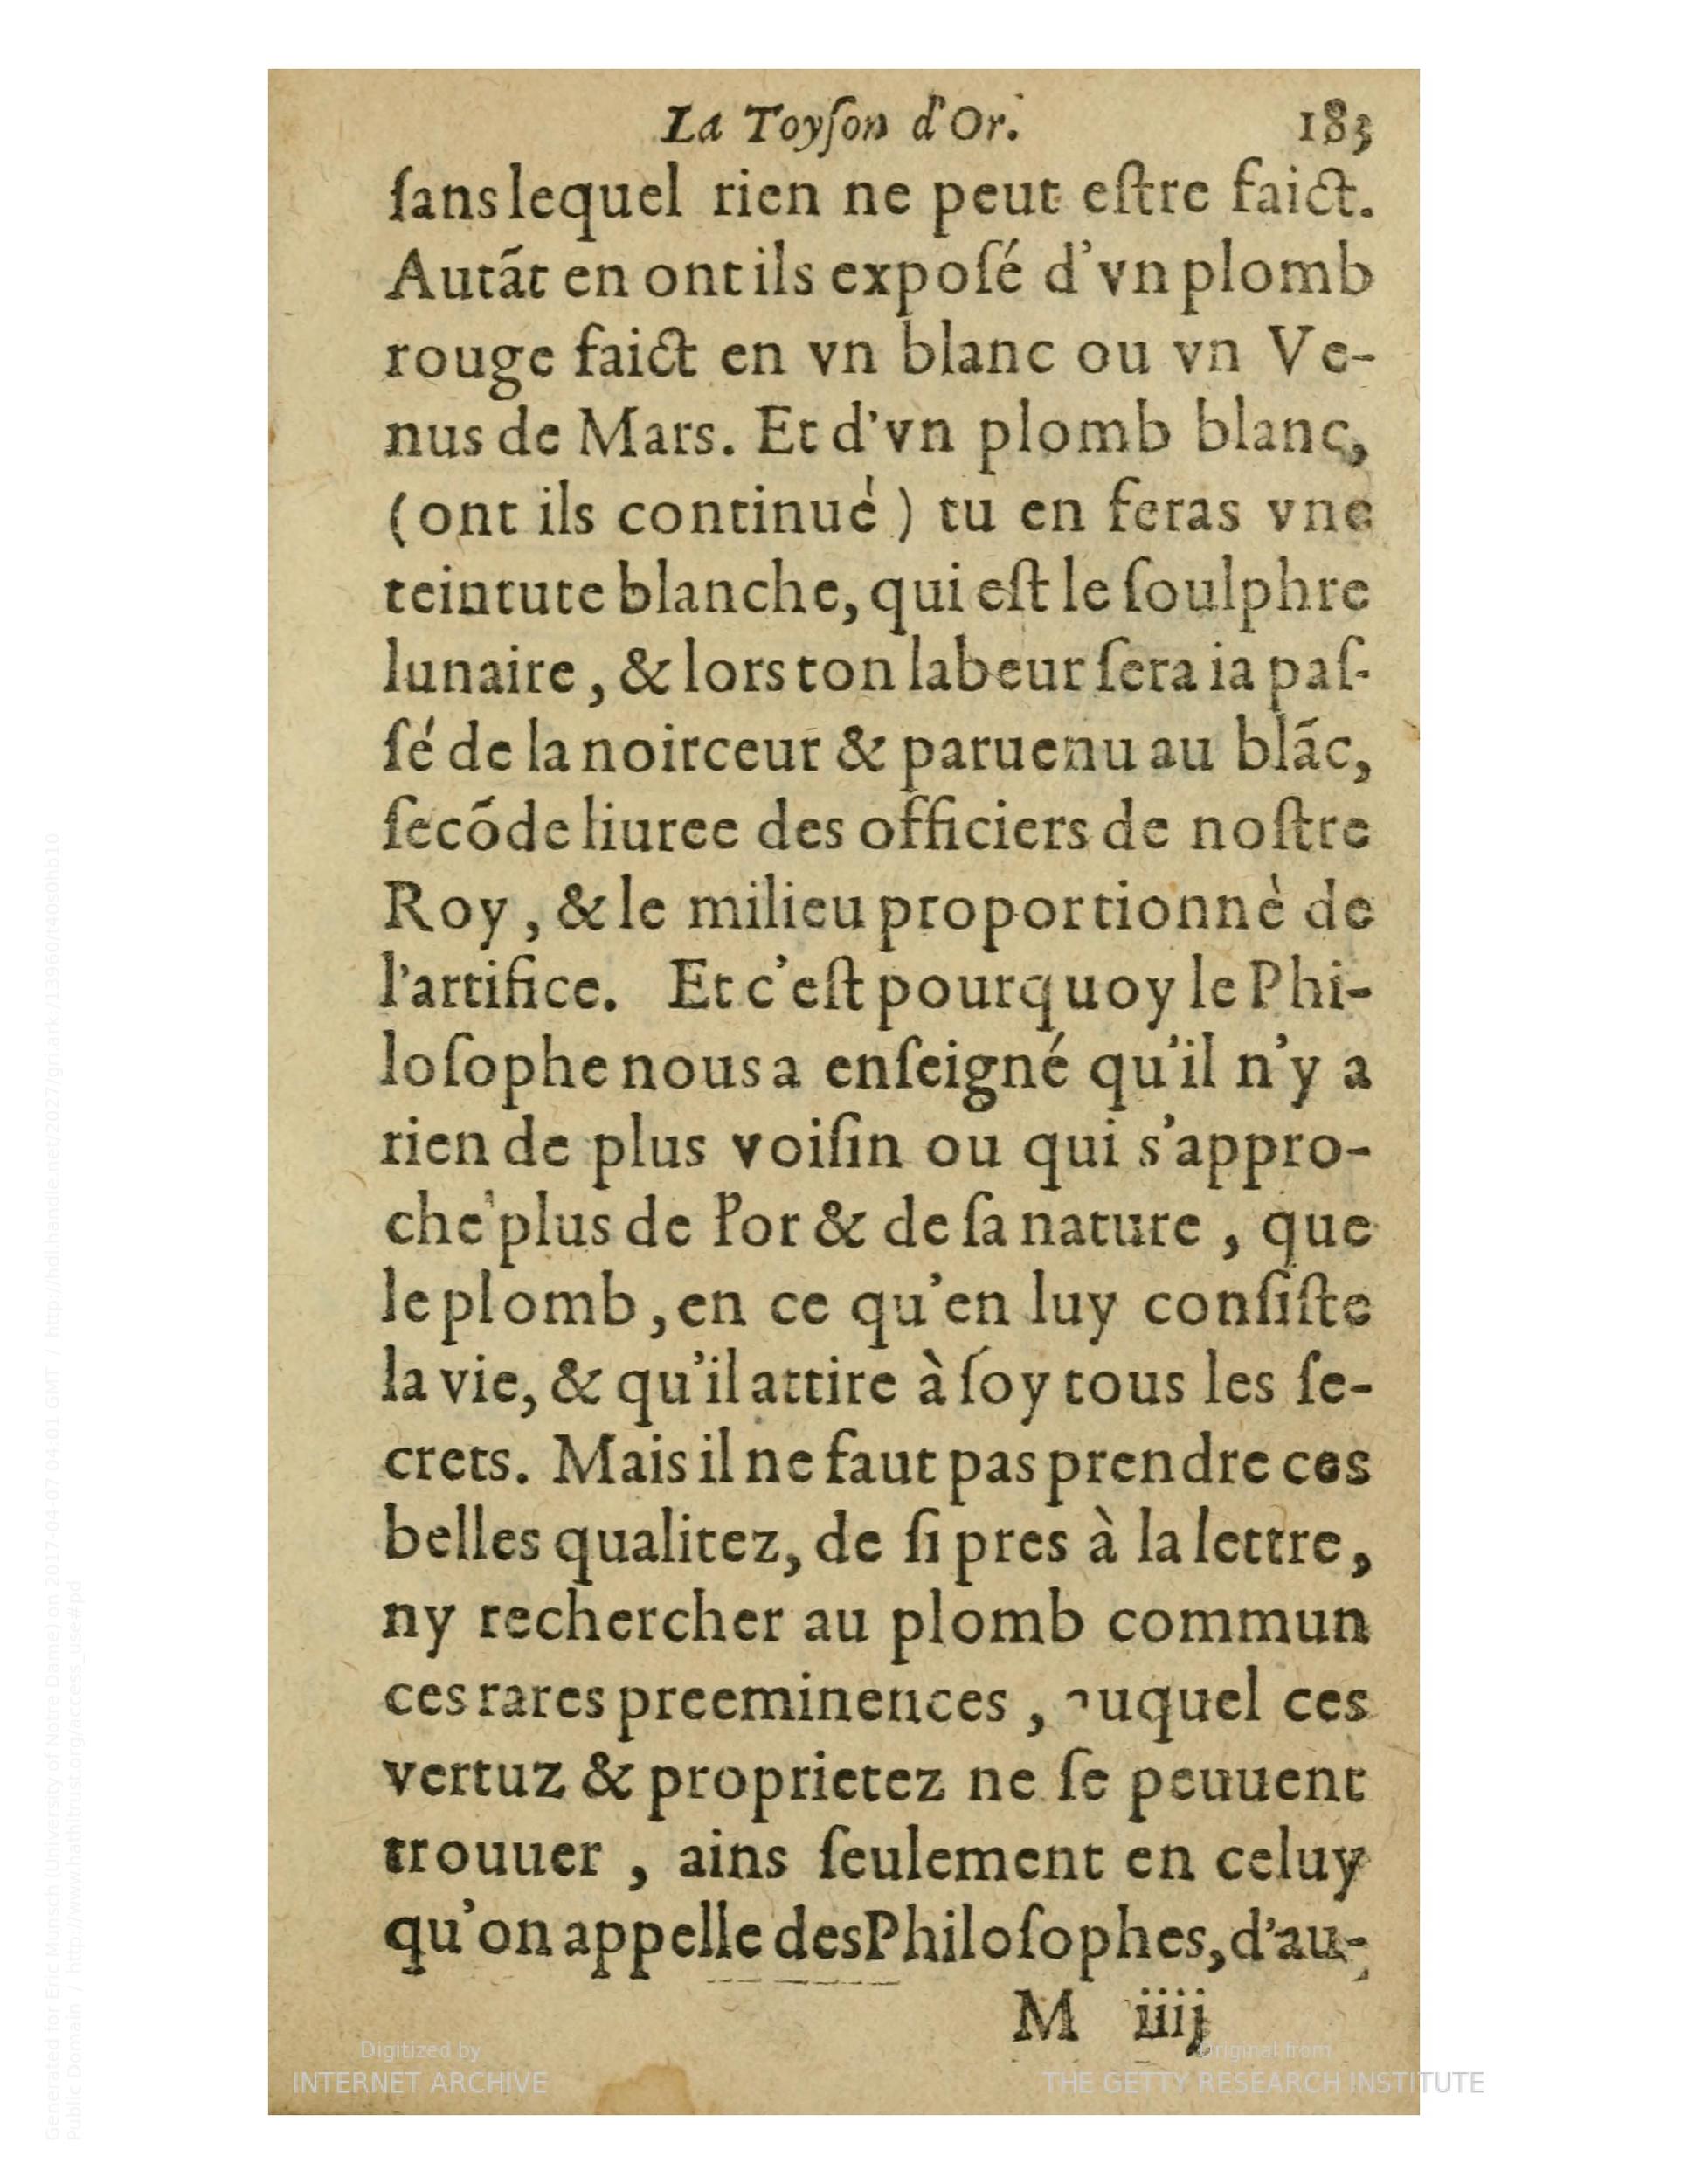 La Toyſon d'Or. 183
ſans lequel rien ne peut eſtre faict.
Autãt en ont ils expoſé d'vn plomb
rouge faict en vn blanc ou vn Ve-
nus de Mars. Et d'vn plomb blanc,
(ont ils continué) tu en feras vne
teintute blanche, qui eſt le ſoulphre
lunaire, & lors ton labeur ſera ia paſ-
ſé de la noirceur & paruenu au blãc,
ſecõde liuree des officiers de noſtre
Roy, & le milieu proportionnè de
l'artifice. Et c'eſt pourquoy le Phi-
loſophe nous a enſeigné qu'il n'y a
rien de plus voiſin ou qui s'appro-
che plus de l'or & de ſa nature, que
le plomb, en ce qu'en luy conſiſte
la vie, & qu'il attire à ſoy tous les ſe-
crets. Mais il ne faut pas prendre ces
belles qualitez, de ſi pres à la lettre,
ny rechercher au plomb commun
ces rares preeminences, auquel ces
vertuz & proprietez ne ſe peuuent
trouuer, ains ſeulement en celuy
qu'on appelle des Philoſophes, d'au-
M iiij
Digitized by
INTERNET ARCHIVE
Original from
THE GETTY RESEARCH INSTITUTE
Generated for Eric Munsch (University of Notre Dame) on 2017-04-07 04:01 GMT / http://hdl.handle.net/2027/gri.ark:/13960/t40s0hb10
Public Domain / http://www.hathitrust.org/access_use#pd